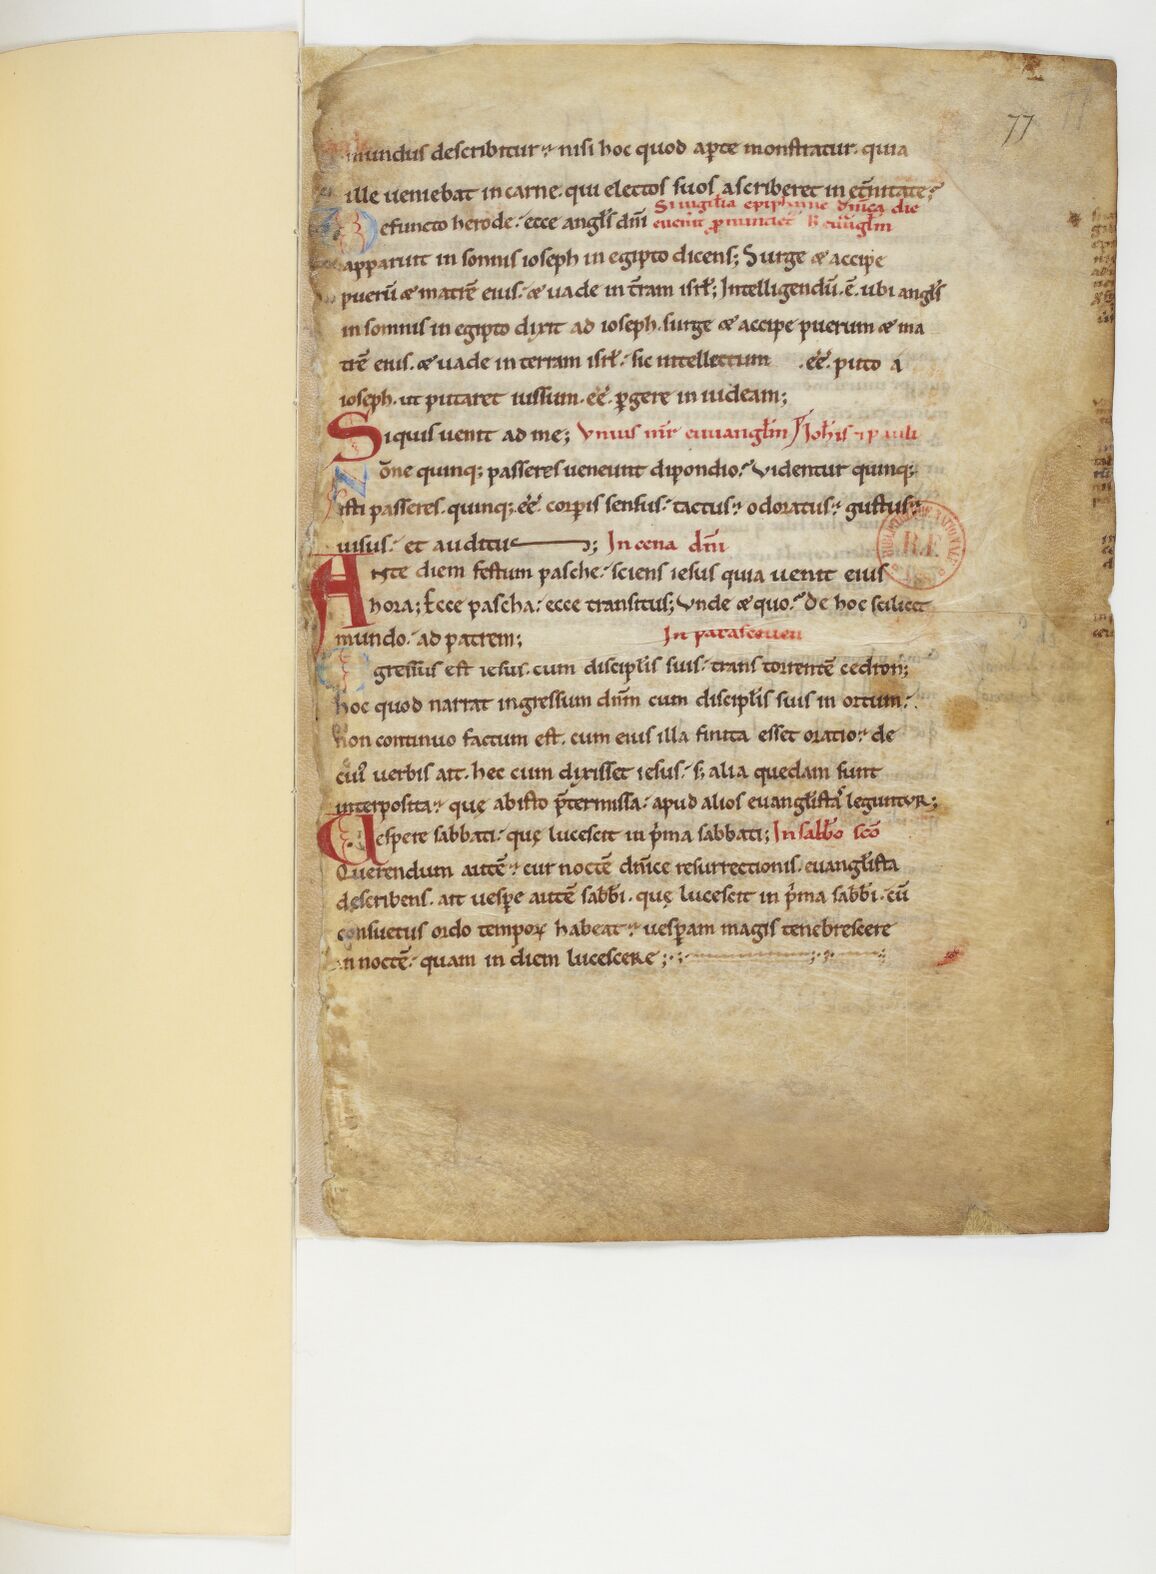 77
mundus describitur; nisi hoc quod aperte monstratur. quia
ille ueniebat in carne. qui electos suos ascriberet in et̃nitate;
Si uigilia epiphanie dñica die
Defuncto herode. ecce angl̃s dñi euenerit ꝓnunciet᷑ euuãglm
apparuit in somnis ioseph in egipto dicens; Surge & accipe
puerũ & matrẽ eius. & uade in t̃ram isrl̃; Intelligendũ. ẽ. ubi angl̃s
in somnis in egipto dixit ad ioseph. surge & accipe puerum & ma
trẽ eius. & uade in terram isrl̃. sic intellectum .eẽ. puto a
ioseph. ut putaret iussum. eẽ. ꝑgere in iudeam;
Siquis uenit ad me; Vnius mr̃ euuangl̃m Ioh̃is & pauli
Nõne quinq; passeres ueneunt dipondio. Videntur quinq;
isti passeres. quinq;. eẽ. corꝑis sensus. tactus. odoratus. gustus.
uisus. et auditus; In cena dñi
Ante diem festum pasche. sciens iesus quia uenit eius
hora; Ecce pascha. ecce transitus; Vnde & quo. de hoc scilicet
mundo. ad patrem; In parasceuen
Egressus est iesus. cum discipl̃is suis. trans torrentẽ cedron;
hoc quod narrat ingressum dñm cum discipl̃is suis in ortum.
non continuo factum est. cum eius illa finita esset oratio. de
cui᷒ uerbis ait. hec cum dixisset iesus. s; alia quedam sunt
interposita. quę ab isto p̃termissa. apud alios euangl̃istas leguntur;
Vespere sabbati. quę lucescit in p̃ma sabbati; In sabb̃o scõ
Querendum autẽ. cur noctẽ dñice resurrectionis. euangl̃ista
describens. ait uesꝑe autẽ sabb̃i. quę lucescit in p̃ma sabb̃i. cũ
consuetus ordo temporꝝ habeat. uesꝑam magis tenebrescere
in noctẽ. quam in diem lucescere;
BIBLIOTHEQUE NATIONALE
R.F.